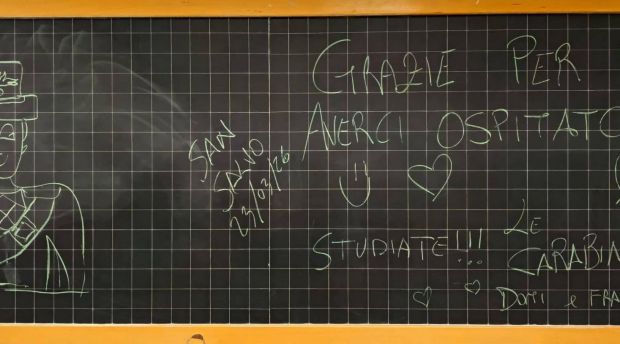 SAN
SALVO
23/03/26
GRAZIE PER
AVERCI OSPITATO
STUDIATE!!!
LE
CARABIN
DOMI e FRA